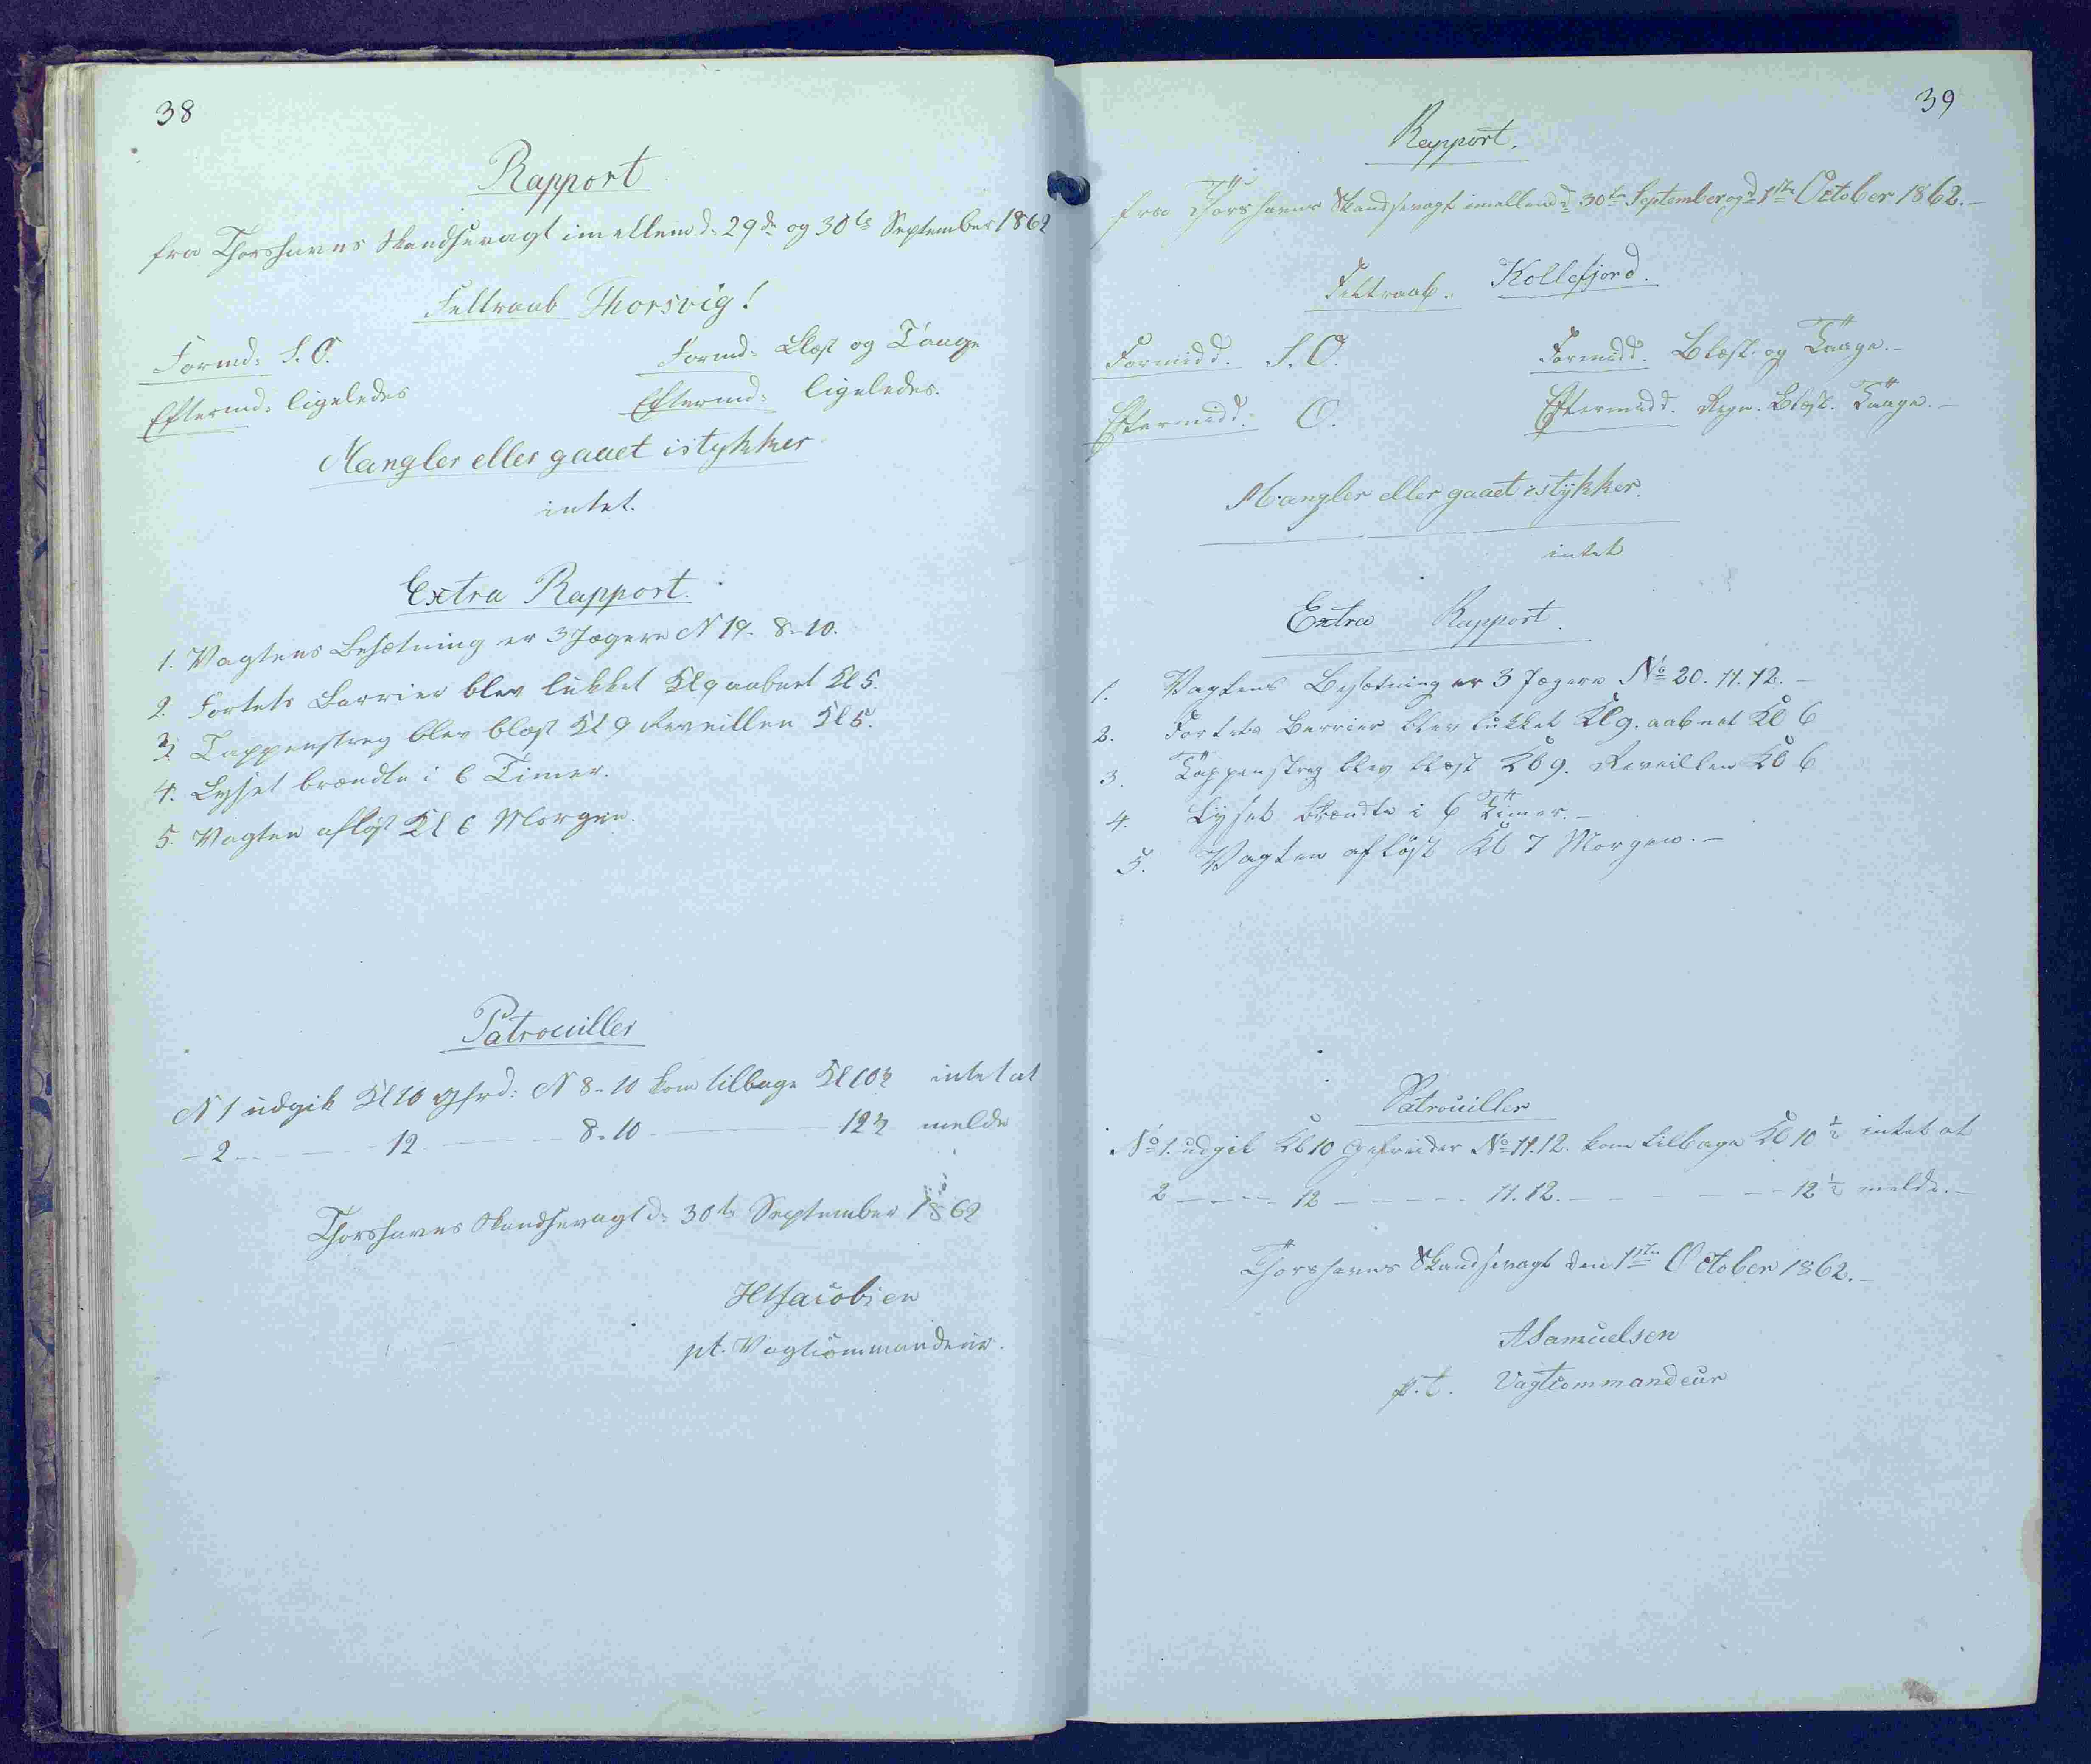 38
Rapport
fra Thorshavns Skandsevagt imellem d: 29de og 30te September 1862
Feltraab Thorsvig!
Formd: S.O. Formd: Blæst og Taage
Eftermd: ligeledes Eftermd: ligeledes.
Mangler eller gaaet istykker
intet.
Extra Rapport.
1. Vagtens Besætning er 3 Jægere N 19. 8-10.
2. Fortets Barrier blev lukket Kl 9 aabnet Kl 5.
3. Tappenstreg blev blæst Kl 9 Reveillen Kl 5.
4. Lyset brændte i 6 Timer.
5. Vagten afløst Kl 6 Morgen.
Patrouiller
N 1 udgik Kl 10 Gfrd: N 8-10 kom tilbage Kl 10½ intet at
- 2 - - - - 12 - - - 8-10 - - - 12½ melde
Thorshavns Skandsevagt d: 30te September 1862
HJacobsen
pt. Vagtcommandeur.
39
Rapport.
fra Thorshavns Skandsevagt imellem d. 30te September og d 1ste October 1862.-
Feltraab. Kollefjord.
Formidd. S.O. Formidd. Blæst og Taage.-
Eftermidd. O. Eftermidd. Regn. Blæst. Taage.-
Mangler eller gaaet istykker.
intet
Extra Rapport.
1. Vagtens Besætning er 3 Jægere No 20. 11. 12.-
2. Fortets Barrier blev lukket Kl 9. aabnet Kl 6
3. Tappenstreg blev blæst Kl 9. Reveillen Kl 6
4. Lyset brændte i 6 Timer.-
5. Vagten afløst Kl 7 Morgen.-
Patrouiller
No 1. udgik Kl 10 Gefreider No 11. 12. kom tilbage Kl 10 ½ intet at
2 - - - - 12 - - - - - 11. 12. - - - - - 12 ½ melde.-
Thorshavns Skandsevagt den 1ste October 1862.-
ASamuelsen
p.t. Vagtcommandeur